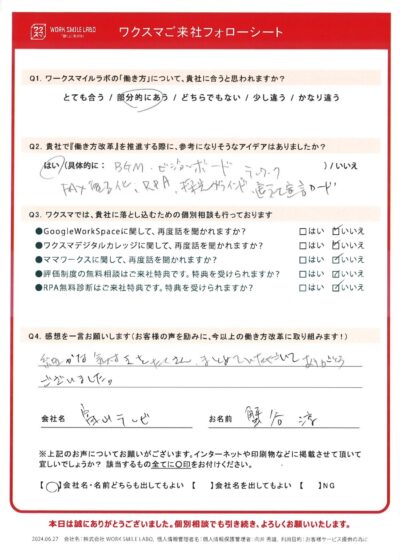 WORK SMILE LABO
ワクスマご来社フォローシート
Q1. ワークスマイルラボの「働き方」について、貴社に合うと思われますか?
とても合う / 部分的にあう / どちらでもない / 少し違う / かなり違う
Q2. 貴社で『働き方改革』を推進する際に、参考になりそうなアイデアはありましたか?
はい (具体的に: BGM・ビジョンボード ) / いいえ
FAX電子化、RPA、採光ブラインド
Q3. ワクスマでは、貴社に落とし込むための個別相談も行っております
●GoogleWorkSpaceに関して、再度話を聞かれますか? □はい ☑いいえ
●ワクスマデジタルカレッジに関して、再度話を聞かれますか? □はい ☑いいえ
●ママワークスに関して、再度話を聞かれますか? □はい ☑いいえ
●評価制度の無料相談はご来社特典です。特典を受けられますか? □はい ☑いいえ
●RPA無料診断はご来社特典です。特典を受けられますか? □はい ☑いいえ
Q4. 感想を一言お願いします(お客様の声を励みに、今以上の働き方改革に取り組みます!)
ありがとう
ございました。
会社名 富山テレビ お名前 蟹谷
※上記のお声についてお願いがございます。インターネットや印刷物などに掲載させて頂いて
宜しいでしょうか? 該当するもの全てに〇印をお付けください。
【〇】会社名・名前どちらも出してもよい 【 】会社名を出してもよい 【 】NG
本日は誠にありがとうございました。個別相談でも引き続き、よろしくお願いいたします。
2024.06.27 会社名:株式会社 WORK SMILE LABO、個人情報管理者名:個人情報保護管理者:向井 秀雄、利用目的:お客様サービス提供の為に